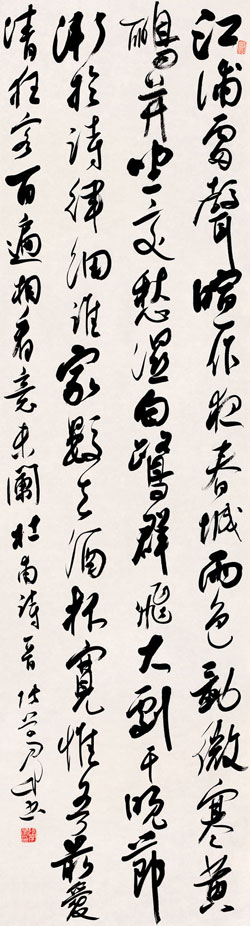 江浦雷聲喧昨夜春城雨色動微寒黃
鸝并坐交愁濕白鷺群飛大劇干晚節
漸於詩律細誰家數去酒杯寬惟吾最愛
清狂客百遍相看意未闌杜甫詩晉